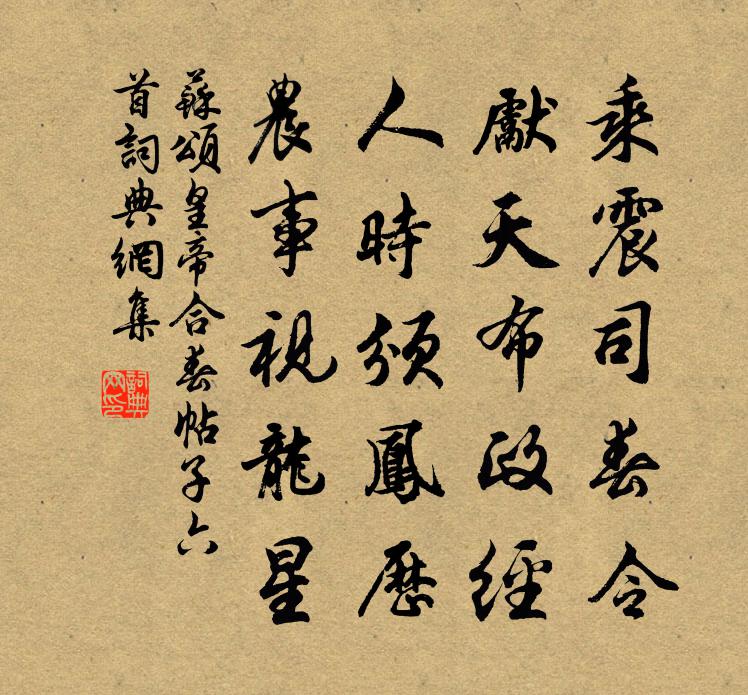 乘震司春令
獻天布政經
人時頒鳳歷
農事視龍星
蘇頌皇帝合春帖子六
首詞典網集
詞典網印